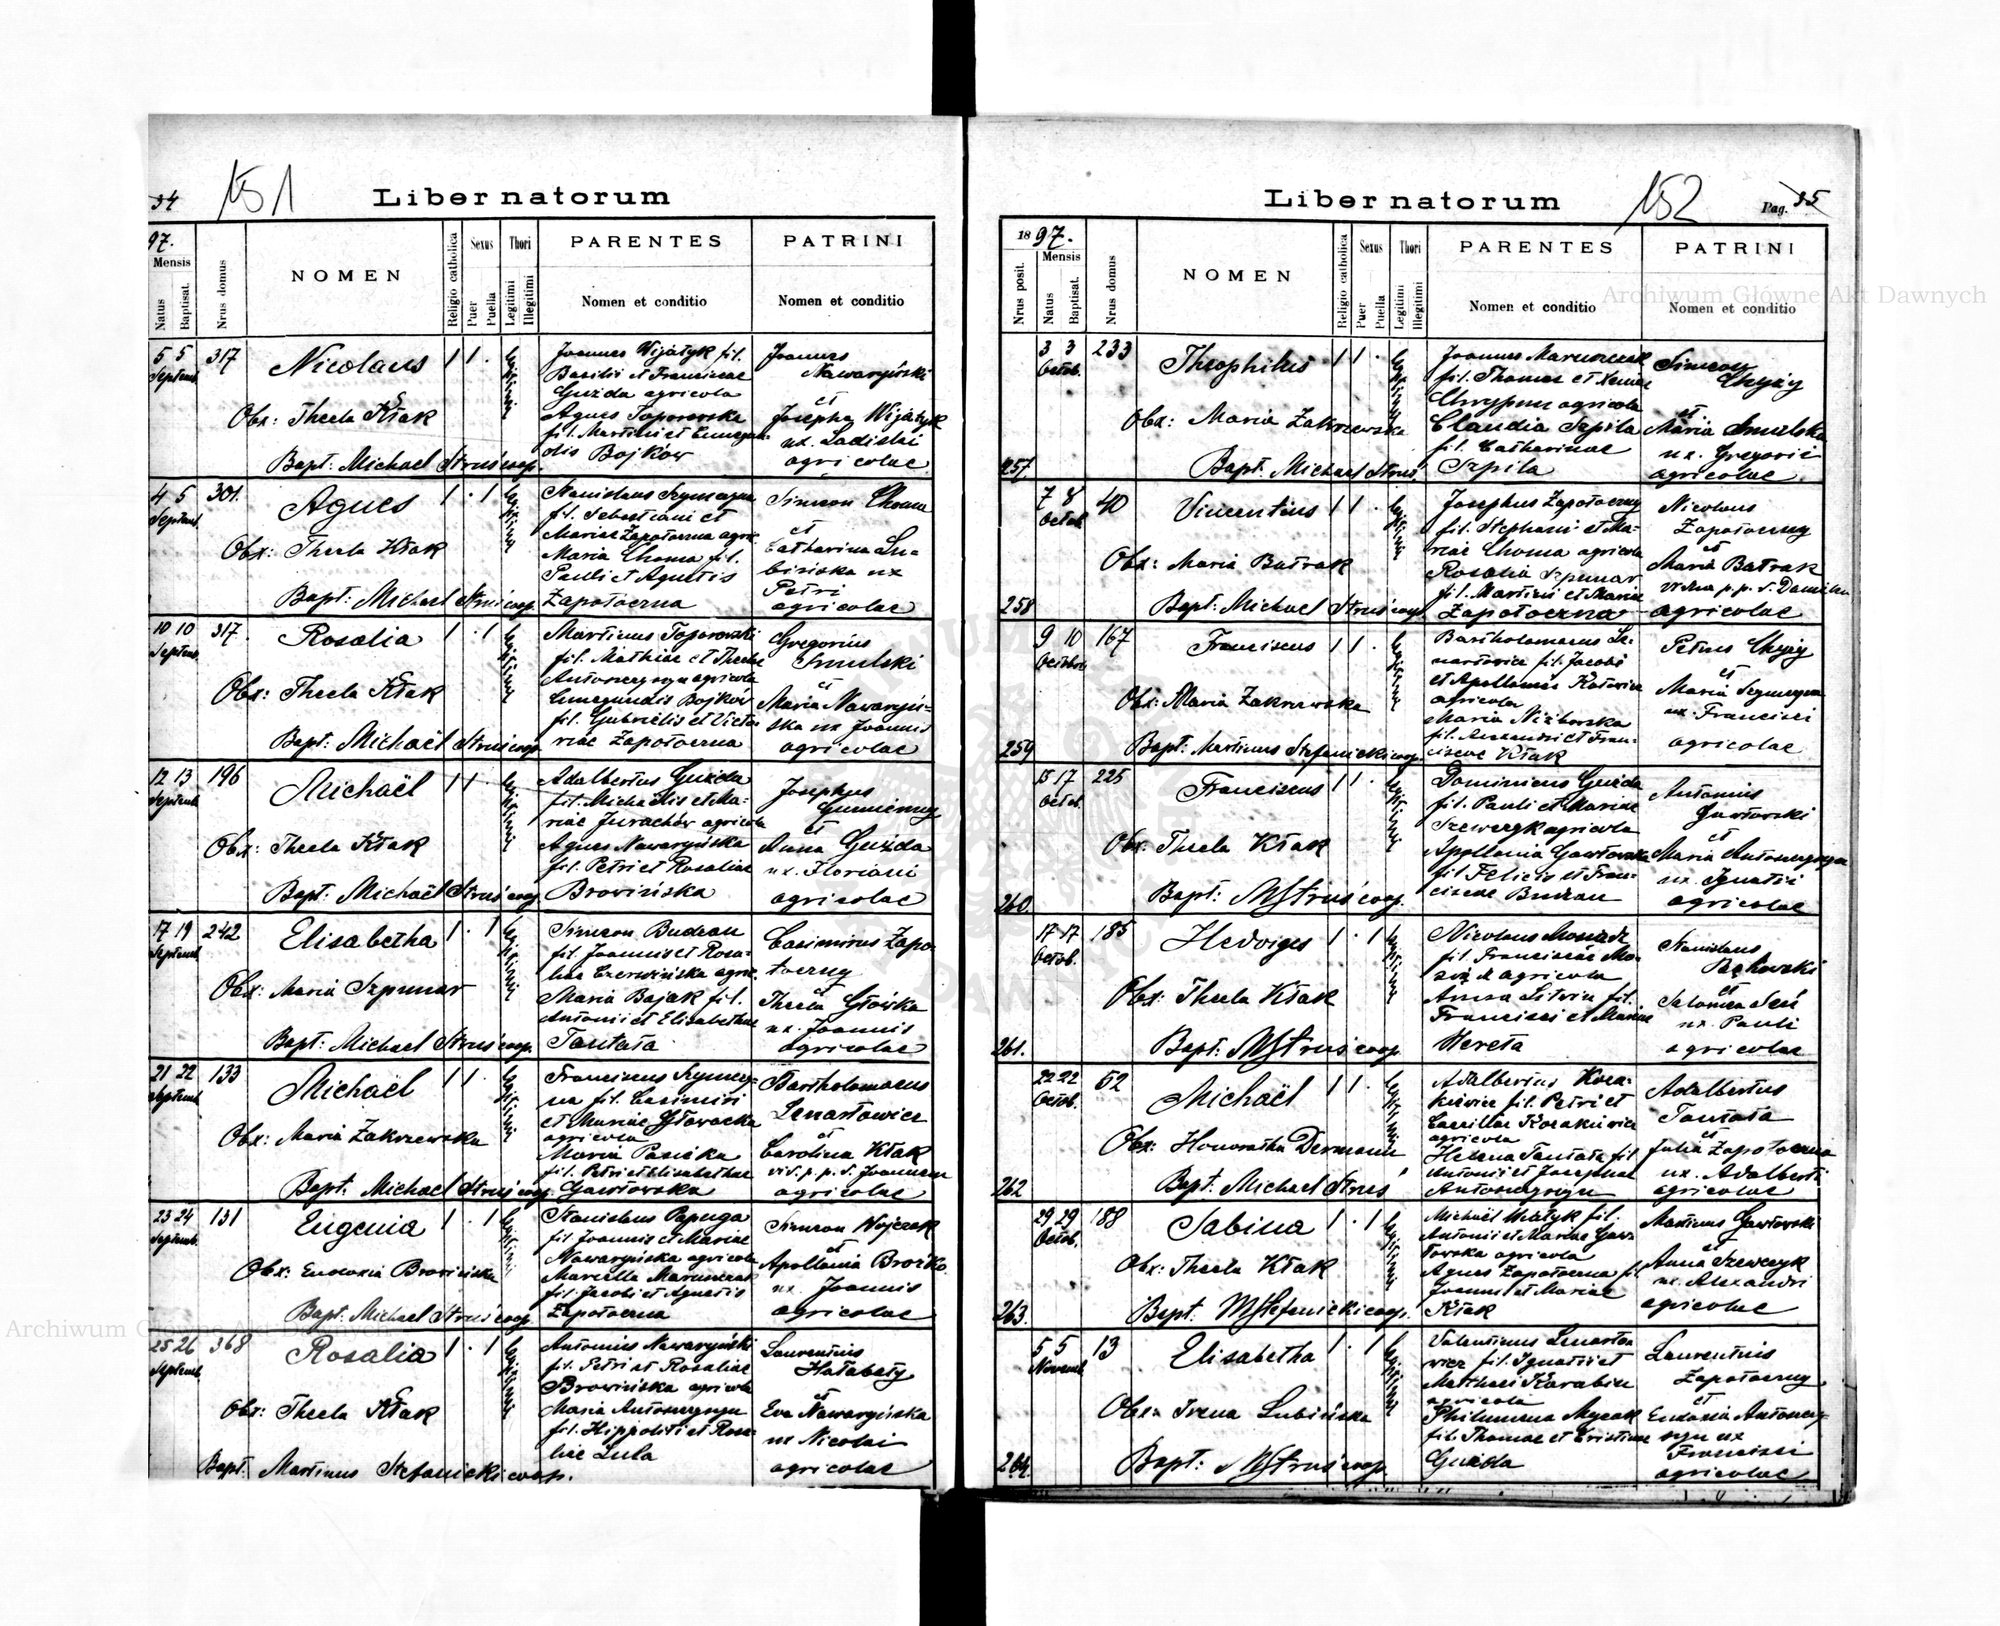 34
151
Liber natorum
97.
Mensis
Natus
Baptisat.
Nrus domus
NOMEN
Religio catholica
Sexus
Puer
Puella
Thori
Legitimi
Illegitimi
PARENTES
Nomen et conditio
PATRINI
Nomen et conditio
5 5 317
Septemb.
Nicolaus 1 1 .
Obx: Thecla Kłak
Bapt: Michael Struś coop.
Joannes Wijatyk fil.
Basilii et Franciscae
Guzda agricola
Agnes Toporowska
fil. Martini et Cunegun-
dis Bojków
Joannes
Nawaryński
et
Josepha Wijatyk
ux. Ladislai
agricolae
4 5 301.
Septemb.
Agnes 1 . 1
Obx: Thecla Kłak
Bapt: Michael Struś coop.
Stanislaus Szymczyna
fil. Sebastiani et
Mariae Zapotoczna agric.
Maria Choma fil.
Pauli et Agnetis
Zapotoczna
Simeon Choma
et
Catharina Lu-
bińska ux
Petri
agricolae
10 10 317.
Septemb.
Rosalia 1 . 1
Obx: Thecla Kłak
Bapt: Michaël Struś coop.
Martinus Toporowski
fil. Mathiae et Theclae
Antoszczyszyn agricola
Cunegundis Bojków
fil. Gabrielis et Victo-
riae Zapotoczna
Gregorius
Smulski
et
Maria Nawaryń-
ska ux Joannis
agricolae
12 13 196
Septemb.
Michaël 1 1 .
Obx: Thecla Kłak
Bapt: Michaël Struś coop.
Adalbertus Guzda
fil. Michaëlis et Ma-
riae Jurachów agricola
Agnes Nawaryńska
fil. Petri et Rosaliae
Browińska
Josephus
Gumienny
et
Anna Guzda
ux. Floriani
agricolae
17 19 242
Septemb.
Elisabetha 1 . 1
Obx: Maria Szpunar
Bapt: Michael Struś coop.
Simeon Budzan
fil. Joannis et Rosa-
liae Czerwińska agric.
Maria Bajak fil.
Antonii et Elisabethae
Tantała
Casimirus Zapo-
toczny
et
Thecla Głowka
ux. Joannis
agricolae
21 22 133
Septemb.
Michaël 1 1 .
Obx: Maria Zakrzewska
Bapt: Michael Struś coop.
Franciscus Szymczy-
na fil. Casimiri
et Mariae Głowacka
agricola
Maria Pasicka
fil. Petri et Elisabethae
Gawłowska
Bartholomaeus
Lenartowicz
et
Carolina Kłak
vid. p. p. d. Joannem
agricolae
23 24 131
Septemb.
Eugenia 1 . 1
Obx: Eudoxia Browińska
Bapt: Michael Struś coop.
Stanislaus Papuga
fil. Joannis et Mariae
Nawaryńska agricola
Marcella Maruszczak
fil. Jacobi et Agnetis
Zapotoczna
Simeon Wojczak
et
Apollonia Brożko
ux. Joannis
agricolae
25 26 368
Septemb.
Rosalia 1 . 1
Obx: Thecla Kłak
Bapt. Martinus Stefanicki coop.
Antonius Nawaryński
fil. Petri et Rosaliae
Browińska agricola
Maria Antoszczyszyn
fil. Hippoliti et Rosa-
liae Lula
Laurentius
Hałabaty
et
Eva Nawaryńska
ux Nicolai
agricolae
Liber natorum
152
Pag. 35
18 97.
Mensis
Nrus posit.
Natus
Baptisat.
Nrus domus
NOMEN
Religio catholica
Sexus
Puer
Puella
Thori
Legitimi
Illegitimi
PARENTES
Nomen et conditio
PATRINI
Nomen et conditio
257.
3 3 233
Octob.
Theophilus 1 1 .
Obx: Maria Zakrzewska
Bapt: Michael Struś
Joannes Maruszczak
fil. Thomae et Xeniae
agricola
Claudia Szpila
fil. Catharinae
Szpila
Simeon
Chyży
et
Maria Smulska
ux. Gregorii
agricolae
258
7 8 40
Octob.
Vincentius 1 1 .
Obx: Maria Batrak
Bapt: Michael Struś coop.
Josephus Zapotoczny
fil. Stephani et Ma-
riae Choma agricola
Rosalia Szpunar
fil. Martini et Mariae
Zapotoczna
Nicolaus
Zapotoczny
et
Maria Batrak
vidua p. p. d.
agricolae
259
9 10 167
Octobris
Franciscus 1 1 .
Obx: Maria Zakrzewska
Bapt: Martinus Stefanicki coop.
Bartholomaeus Le-
nartowicz fil. Jacobi
et Apolloniae Kotowicz
agricola
Maria Niżborska
fil. Alexandri et Fran-
ciscae Kłak
Petrus Chyży
et
Maria Szymczyna
ux. Francisci
agricolae
260.
15 17 225
Octob.
Franciscus 1 1 .
Obx: Thecla Kłak
Bapt: MStruś coop.
Dominicus Guzda
fil. Pauli et Mariae
Szewczyk agricola
Apollonia Gawłowska
fil Felicis et Fran-
ciscae Budzan
Antonius
Gawłowski
et
Maria Antoszczyszyn
ux. Ignatii
agricolae
261.
17 17 185
Octob.
Hedviges 1 . 1
Obx: Thecla Kłak
Bapt: MStruś coop.
Nicolaus
fil. Franciscae
agricola
Anna Litwin fil.
Francisci et Mariae
Wereta
Stanislaus
et
Salomea
ux. Pauli
agricolae
262
22 22 52
Octob.
Michaël 1 1 .
Obx: Honoratha Dermann
Bapt: Michael Struś
Adalbertus Koza-
kiewicz fil. Petri et
Caeciliae Kozakiewicz
agricola
Helena Tantała fil
Antonii et Josephae
Antoszczyszyn
Adalbertus
Tantała
et
Julia Zapotoczna
ux. Adalberti
agricolae
263.
29 29 188
Octob.
Sabina 1 . 1
Obx: Thecla Kłak
Bapt: MStefanicki coop.
Michaël Wiatyk fil.
Antonii et Mariae Gaw-
łowska agricola
Agnes Zapotoczna fil.
Joannis et Mariae
Kłak
Martinus Gawłowski
et
Anna Szewczyk
ux. Alexandri
agricolae
264.
5 5 13
Novemb.
Elisabetha 1 . 1
Obx: Irena Lubińska
Bapt: MStruś coop.
Valentinus Lenarto-
wicz fil. Ignatii et
Karabin
agricola
Philumena Myczak
fil. Thomae et Cristinae
Guzda
Laurentius
Zapotoczny
et
Eudoxia Antoszczy-
szyn ux
Francisci
agricolae
Archiwum Główne Akt Dawnych
Archiwum Główne Akt Dawnych